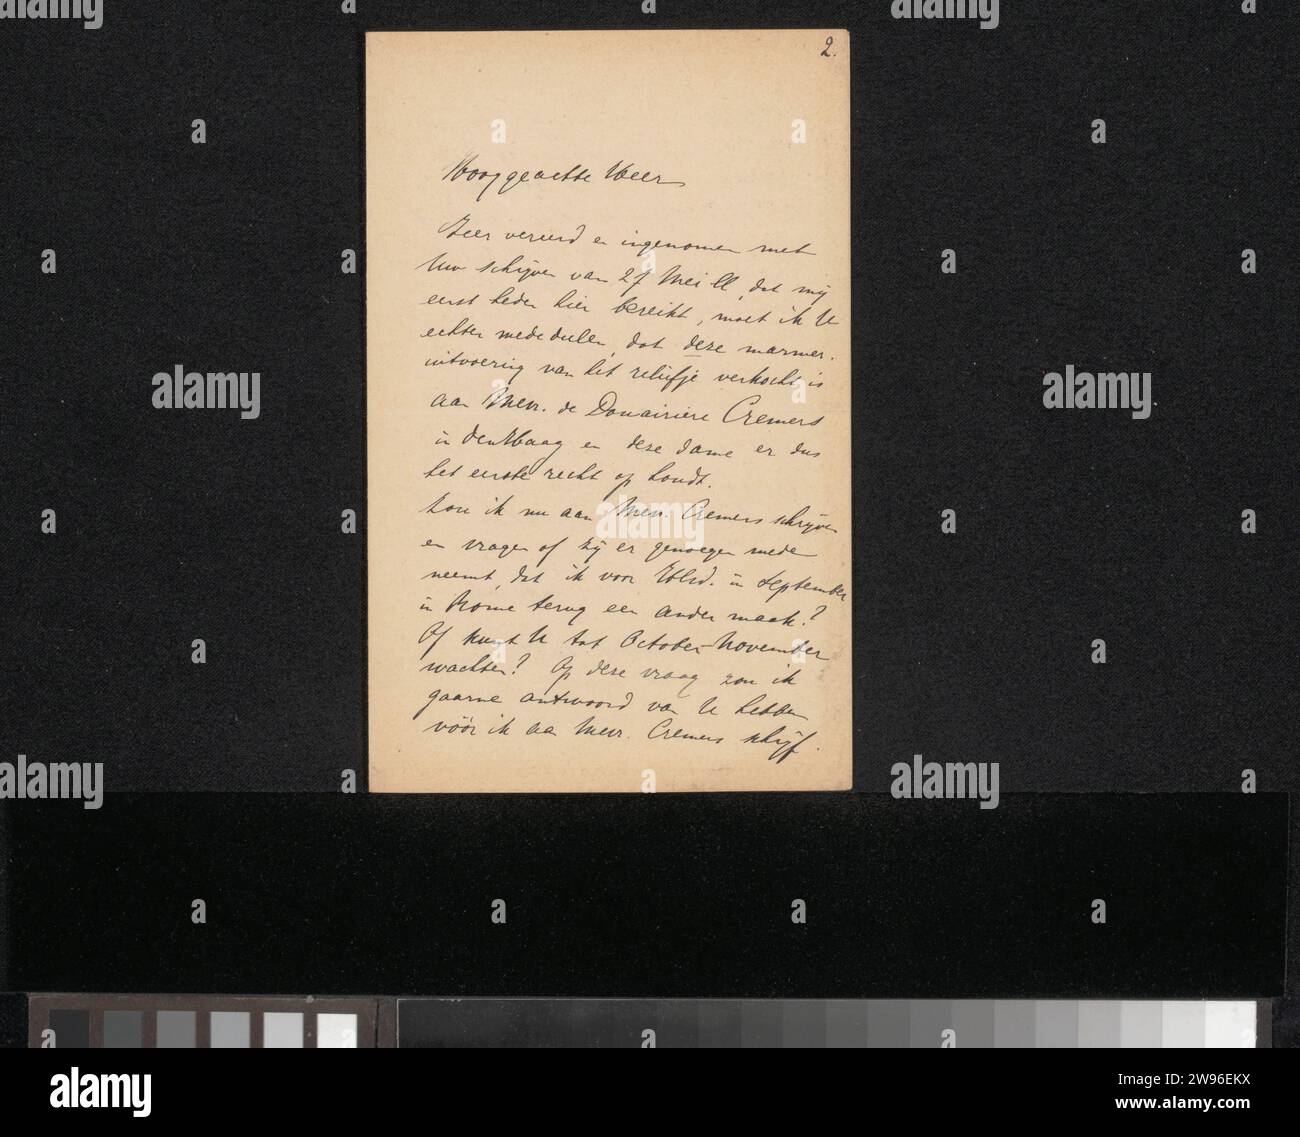 2.
Hooggeachte Heer
Zeer vereerd en ingenomen met
Uw schrijven van 27 Mei ll, dat mij
eerst heden hier bereikt, moet ik U
echter mededeelen, dat deze marmer-
uitvoering van het reliefje verkocht is
aan Mevr. de Douairière Cremers
in den Haag en deze dame er dus
het eerste recht op houdt.
Zou ik nu aan Mevr. Cremers schrijven
en vragen of zij er genoegen mede
neemt, dat ik voor in September
in Rome terug een ander maak?
Of kunt U tot October-November
wachten? Op deze vraag zou ik
gaarne antwoord van U hebben
vóór ik aan Mevr. Cremers schrijf.
alamy
alamy
Image ID: 2W96EKX
www.alamy.com